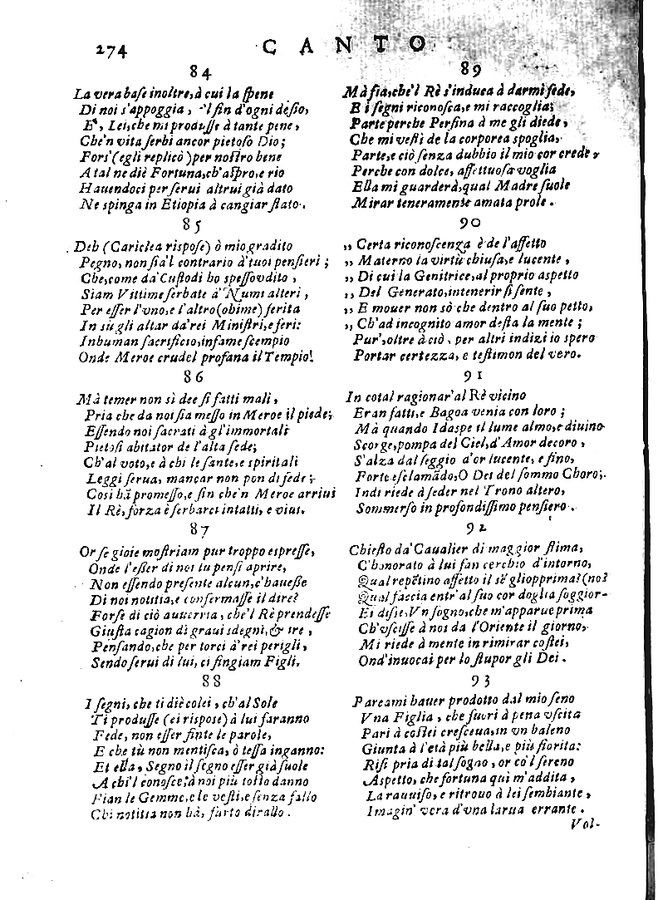 274 CANTO
84
La vera base inoltre, à cui la spene
Di noi s'appoggia, e 'l fin d'ogni desio,
E', Lei, che mi produsse à tante pene,
Che'n vita serbi ancor pietoso Dio;
Fors' (egli replicò) per nostro bene
A tal ne diè Fortuna, ch'aspro, e rio
Hauendoci per serui altrui già dato
Ne spinga in Etiopia à cangiar stato.
85
Deh (Cariclea rispose) ò mio gradito
Pegno, non sia 'l contrario à tuoi pensieri;
Che, come da Custodi ho spesso vdito,
Siam Vittime serbate a' Numi alteri,
Per esser l'vno, e l'altro (ohime) ferita
In sù gli altar da' rei Ministri, e feri:
Inhuman sacrificio, infame scempio
Onde Meroe crudel profana il Tempio!
86
Mà temer non si dee sì fatti mali,
Pria che da noi sia messo in Meroe il piede;
Essendo noi sacrati à gl'immortali
Pietosi abitator de l'alta sede;
Ch'al voto, e à chi le sante, e spiritali
Leggi serua, mancar non pon di fede;
Così hã promesso, e fin che'n Meroe arriui
Il Rè, forza è serbarci intatti, e viui.
87
Or se gioie mostriam pur troppo espresse,
Onde l'esser di noi tu pensi aprire,
Non essendo presente alcun, c'hauesse
Di noi notitia, e confermasse il dire?
Forse di ciò auuerria, che'l Rè prendesse
Giusta cagion di graui sdegni, & ire,
Pensando, che per torci à rei perigli,
Sendo serui di lui, ci fingiam Figli.
88
I segni, che ti diè colei, ch'al Sole
Ti produsse (ei rispose) à lui faranno
Fede, non esser finte le parole,
E che tù non mentisca, ò tessa inganno:
Et ella, Segno il segno esser già suole
A chi'l conosce; à noi più tosto danno
Fian le Gemme, e le vesti, e senza fallo
Chi notitia non hà, furto dirallo.
89
Mà sia, che'l Rè s'induca à darmi fede,
E i segni riconosca, e mi raccoglia;
Parte perche Persina à me gli diede,
Che mi vestì de la corporea spoglia,
Parte, e ciò senza dubbio il mio cor crede,
Perche con dolce, affettuosa voglia
Ella mi guarderà, qual Madre suole
Mirar teneramente amata prole.
90
„ Certa riconoscenza è de l'affetto
„ Materno la virtù chiusa, e lucente,
„ Di cui la Genitrice, al proprio aspetto
„ Del Generato, intenerir si sente,
„ E mouer non sò che dentro al suo petto,
„ Ch'ad incognito amor desta la mente;
Pur', oltre à ciò, per altri indizi io spero
Portar certezza, e testimon del vero.
91
In cotal ragionar' al Rè vicino
Eran fatti, e Bagoa venia con loro;
Mà quando Idaspe il lume almo, e diuino
Scorge, pompa del Ciel, d'Amor decoro,
S'alza dal seggio d'or lucente, e fino,
Forte esclamãdo, O Dei del sommo Choro;
Indi riede à seder nel Trono altero,
Sommerso in profondissimo pensiero.
92
Chiesto da' Caualier di maggior stima,
C'honorato à lui fan cerchio d'intorno,
Qual repẽtino affetto il sẽ gli opprima? (no?
Qual faccia entr' al suo cor doglia soggior-
Ei disse, Vn sogno, che m'apparue prima
Ch'vscisse à noi da l'Oriente il giorno,
Mi riede à mente in rimirar costei,
Ond'inuocai per lo stupor gli Dei.
93
Pareami hauer prodotto dal mio seno
Vna Figlia, che fuori à pena vscita
Pari à costei cresceua, in vn baleno
Giunta à l'età più bella, e più fiorita:
Risi pria di tal sogno, or co'l sereno
Aspetto, che fortuna quì m'addita,
La rauuiso, e ritrouo à lei sembiante,
Imagin' vera d'vna larua errante.
Vol-